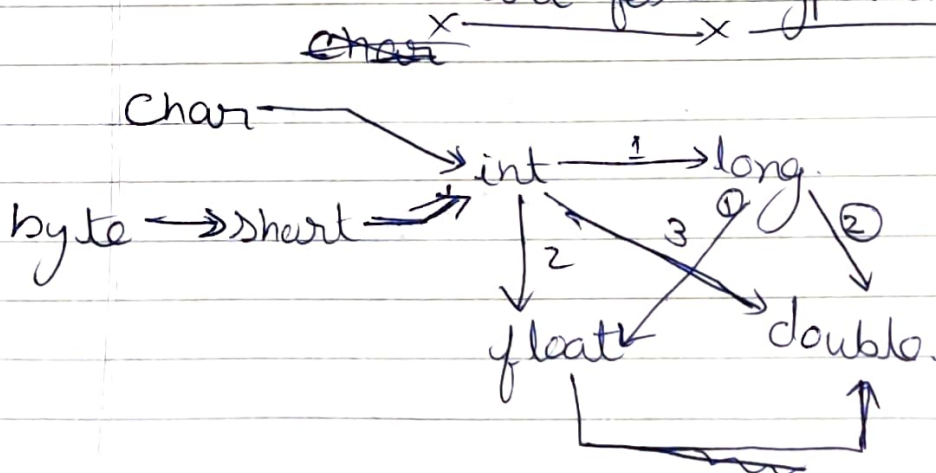 char
Char
int 1 long
byte short 1 3 2
2
float double